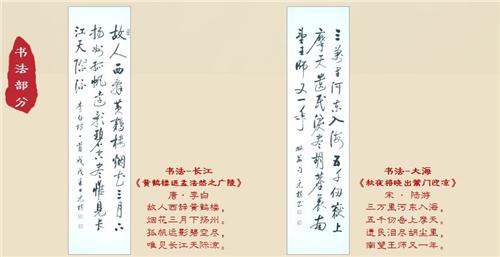 书法部分
故人西辞黄鹤楼烟花三月下
扬州孤帆远影碧空尽惟见长
江天际流 李白诗一首
书法-长江
《黄鹤楼送孟浩然之广陵》
唐·李白
故人西辞黄鹤楼，
烟花三月下扬州。
孤帆远影碧空尽，
唯见长江天际流。
三万里河东入海五千仞岳上
摩天遗民泪尽胡尘里南
望王师又一年
书法-大海
《秋夜将晓出篱门迎凉》
宋·陆游
三万里河东入海，
五千仞岳上摩天。
遗民泪尽胡尘里，
南望王师又一年。